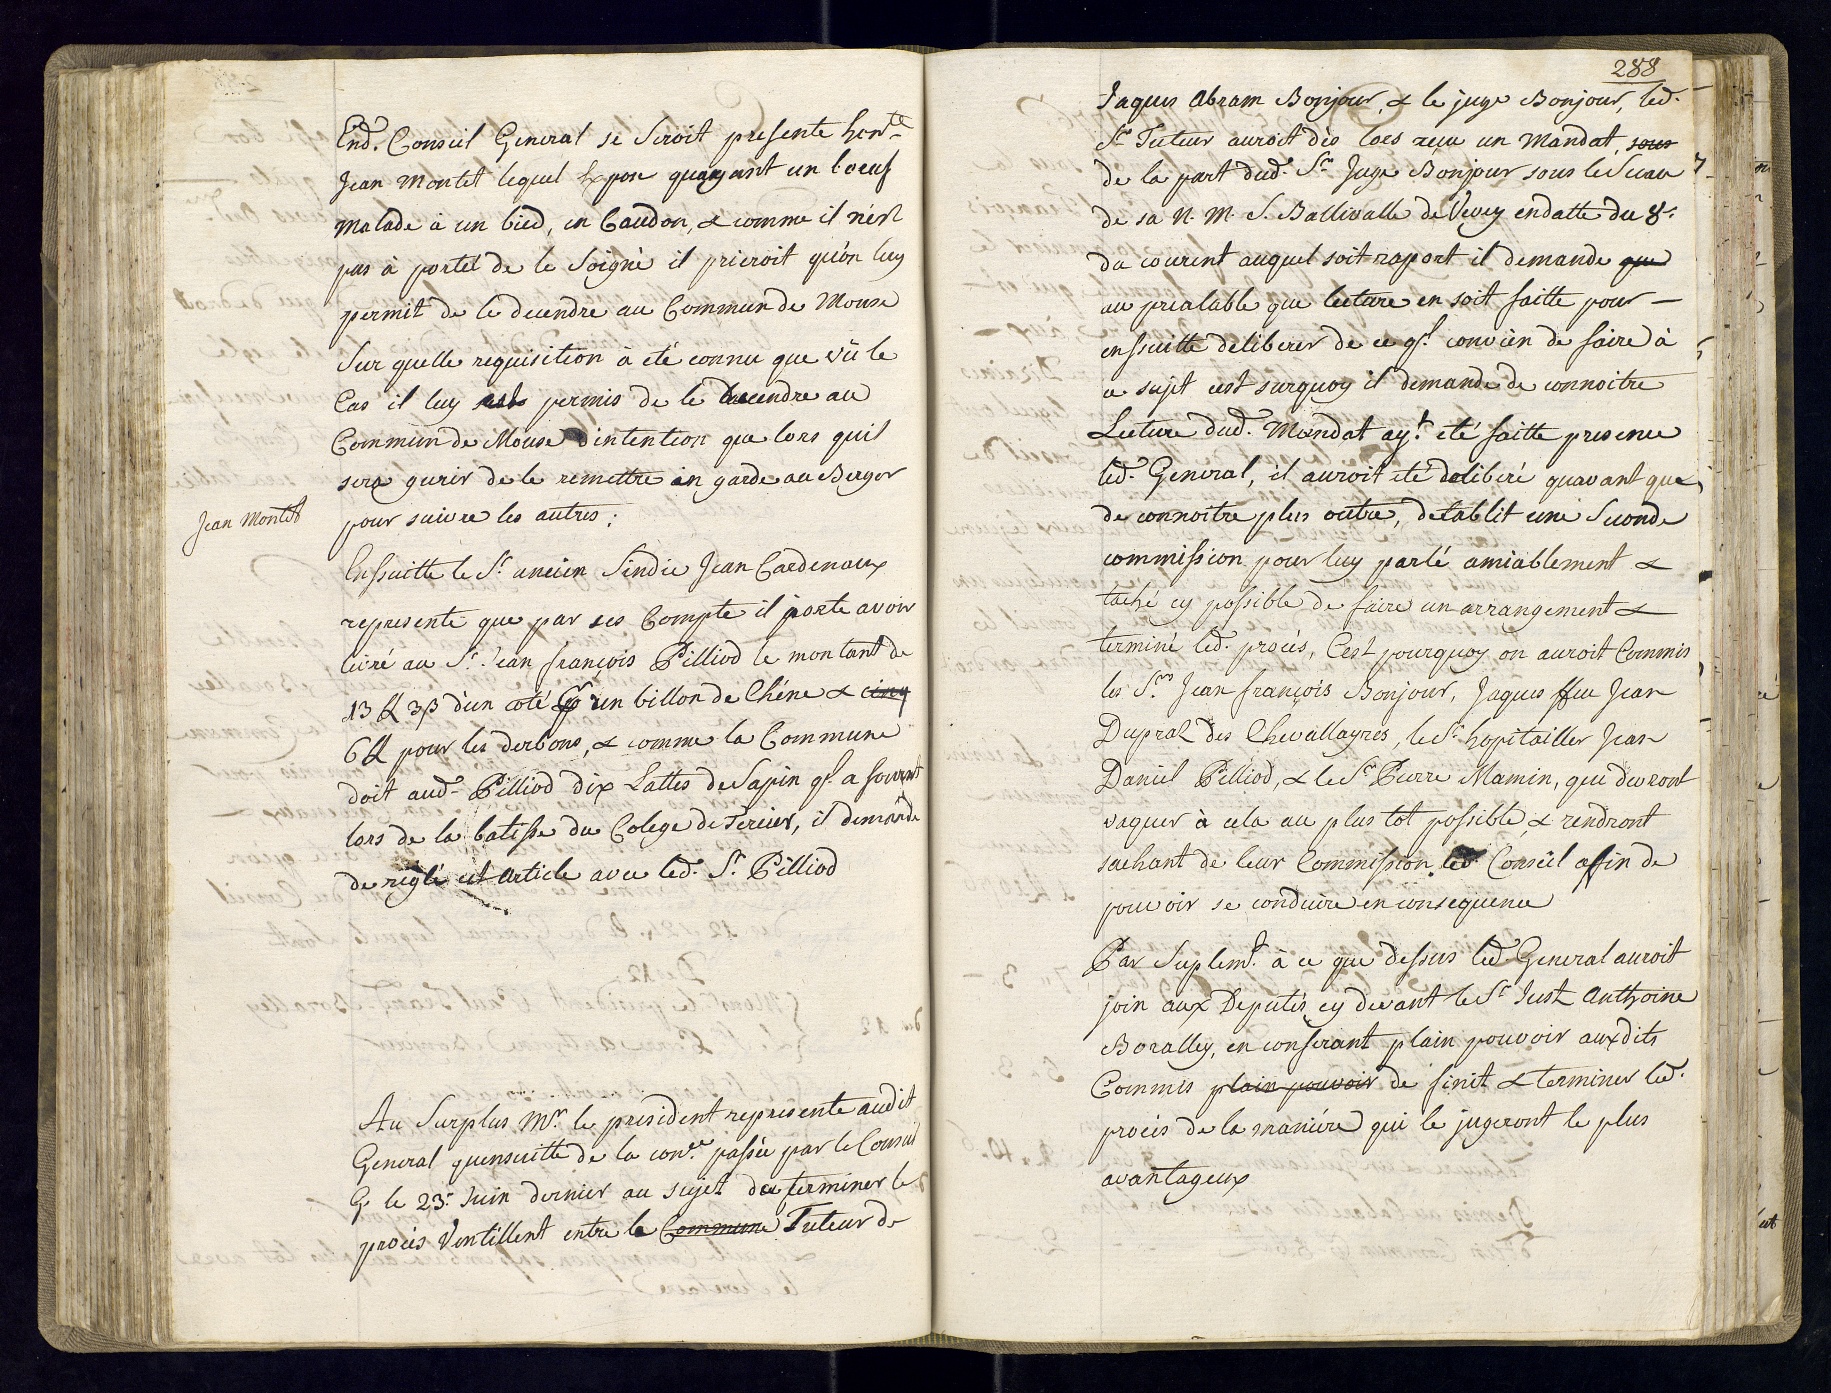 End. Conseil General se Seroit presente hon.te
Jean Montet lequel Expose quayant un boeuf
Malade à un bied, en Caudon, & comme il n'est
pas à portet de le Soigné il prieroit qu'on luy
permit de le decendre au Commun de Mouse
Sur quelle requisition à eté connu que vû le
Cas il luy est permis de le decendre au
Commun de Mouse d'intention que lors quil
sera gurir de le remettre en garde au Berger
Jean Montet
pour suivre les autres;
Ensuitte le Sr. ancien Sindic Jean Cardinaux
represente que par ses Compte il porte avoir
livré au Sr. Jean françois Pilliod le montant de
13 ƒƒ 3 ß d'un coté pr un billon de Chéne & cinq
6 ƒƒ pour les derbons, & comme la Commune
doit aud. Pilliod dix Lattes de Sapin ql. a fournit
lors de la batisse du Colege de Fereier, il demande
de reglé cet Article avec led. Sr. Pilliod
Au Surplus Mr. le président represente audit
General quensuitte de la con.ce passée par le Conseil
G le 23e. Juin dernier au sujet de terminer le
procés Ventillent entre le Commune Tuteur de
288
Jaques Abram Bonjour, & le juge Bonjour, led.
Sr. Tuteur auroit dès lors reçu un Mandat, sous
de la part dud. Sr. Juge Bonjour sous le Seau
de sa N. M. S. Ballivalle de Vevey endatte du 8e.
du courent auquel soit raport il demande que
au prealable que lecture en soit faitte pour —
ensuitte deliberer de ce ql. convien de faire à
ce sujet est surquoy il demande de connoitre
Lecture dud. Mandat ayt. eté faitte presence
led. General, il auroit eté deliberé quavant que
de connoitre plus outre, d'etablit une Seconde
commission pour luy parlé amiablement &
taché cy possible de faire un arrangement &
terminé led. procés, C'est pourquoy on auroit Commis
les Srs. Jean françois Bonjour, Jaques ffeu Jean
Dupraz des Chevallayres, le Sr. hopitailler Jean
Daniel Pilliod, & le Sr. Pierre Mamin, qui devront
vaquer à cela au plus tot possible, & rendront
sachant de leur Commission led. Conseil affin de
pouvoir se conduire en consequence
Par Suplemt. à ce que dessus led. General auroit
join aux Deputés cy devant le Sr. Just Anthoine
Boralley, en conferant plain pouvoir auxdits
Commis plain pouvoir de finit & terminer led.
procés de la maniére qui le jugeront le plus
avantageux